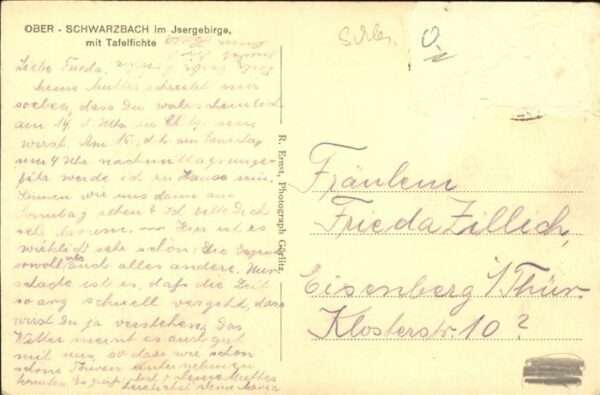 OBER - SCHWARZBACH im Jsergebirge,
mit Tafelfichte
Liebe Frieda,
meine Mutter schreibt mir
soeben, dass Du wahrscheinlich
am 14. d. Mts. in
wirst. Am 15., d. h. am Sonntag
um 4 Uhr nachmittags unge-
fähr werde ich zu Hause sein
Können wir uns dann am
Sonntag sehen? Ich bitte Dich
sehr darum. Hier ist es
wirklich sehr schön. Die
sowohl als auch alles andere. Nur
schade ist es, daß die Zeit
so arg schnell vergeht, dass
wirst Du ja verstehen. Das
Wetter meint es auch gut
mit uns, so dass wir schon
schöne Touren unternehmen
konnten. Es grüßt Dich u. Deine Mutter
herzlichst
R. Ernst, Photograph Görlitz.
Fräulein
Frieda Zillich,
Eisenberg i/Thür.
Klosterstr. 10?